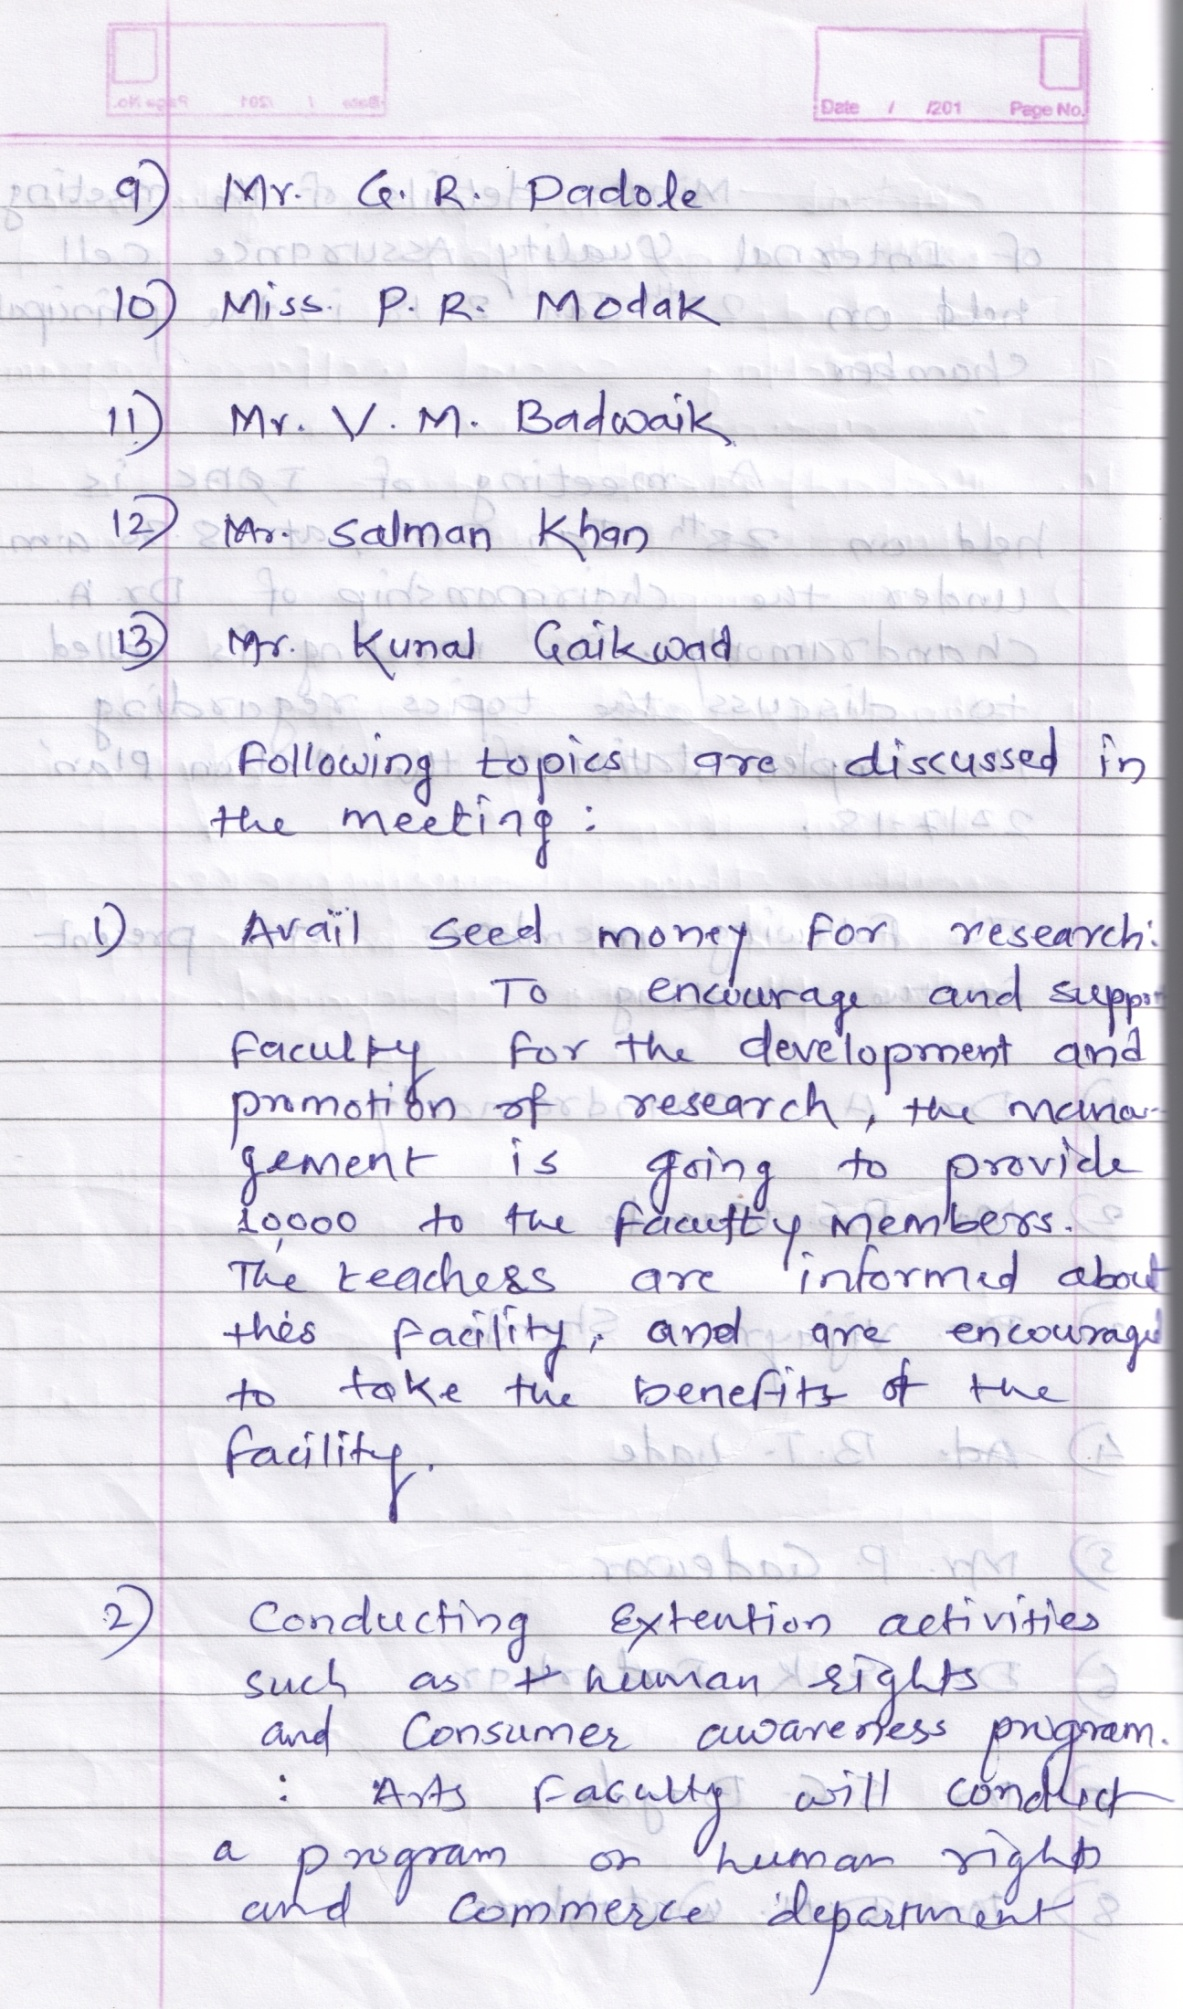 Date / /201 Page No.
9) Mr. G. R. Padole
10) Miss. P. R. Modak
11) Mr. V. M. Badwaik
12) Mr. Salman Khan
13) Mr. Kunal Gaikwad
Following topics are discussed in
the meeting :
1) Avail seed money for research:
To encourage and support
faculty for the development and
promotion of research, the mana-
gement is going to provide
10,000 to the faculty members.
The teachers are informed about
this facility, and are encouraged
to take the benefits of the
facility.
2) Conducting Extention activities
such as human rights
and Consumer awareness program.
: Arts Faculty will conduct
a program on human rights
and Commerce department